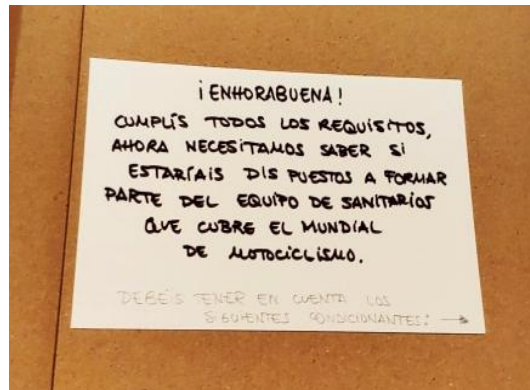 ¡ENHORABUENA!
CUMPLÍS TODOS LOS REQUISITOS,
AHORA NECESITAMOS SABER SI
ESTARÍAIS DISPUESTOS A FORMAR
PARTE DEL EQUIPO DE SANITARIOS
QUE CUBRE EL MUNDIAL
DE MOTOCICLISMO.
DEBEÍS TENER EN CUENTA LOS
SIGUIENTES CONDICIONANTES: →